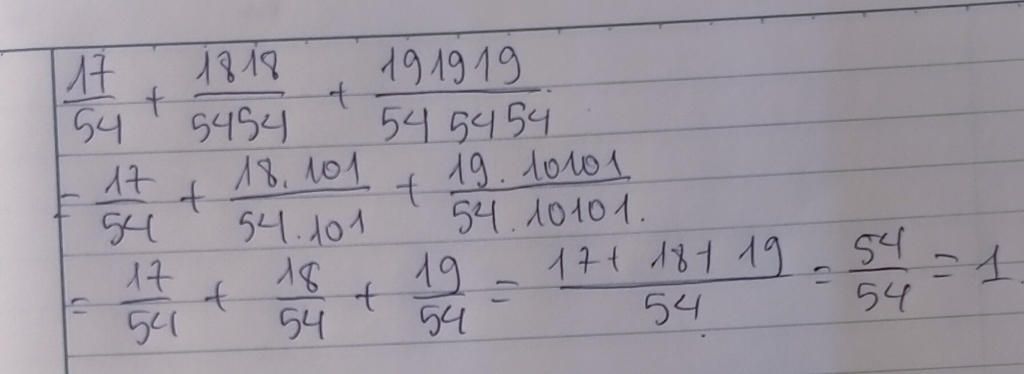 17/54 + 1818/5454 + 191919/545454
= 17/54 + 18.101/54.101 + 19.10101/54.10101.
= 17/54 + 18/54 + 19/54 = 17+18+19/54 = 54/54 = 1.